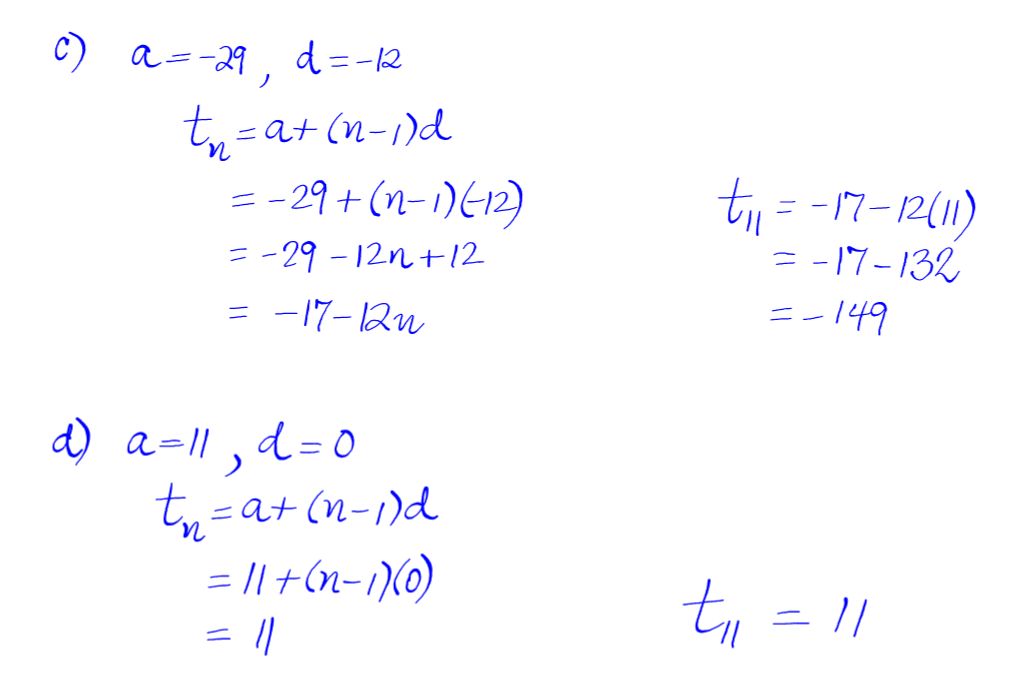 c) a = -29, d = -12
tₙ = a + (n-1)d
= -29 + (n-1)(-12)
= -29 - 12n + 12
= -17 - 12n
t₁₁ = -17 - 12(11)
= -17 - 132
= -149
d) a = 11, d = 0
tₙ = a + (n-1)d
= 11 + (n-1)(0)
= 11
t₁₁ = 11